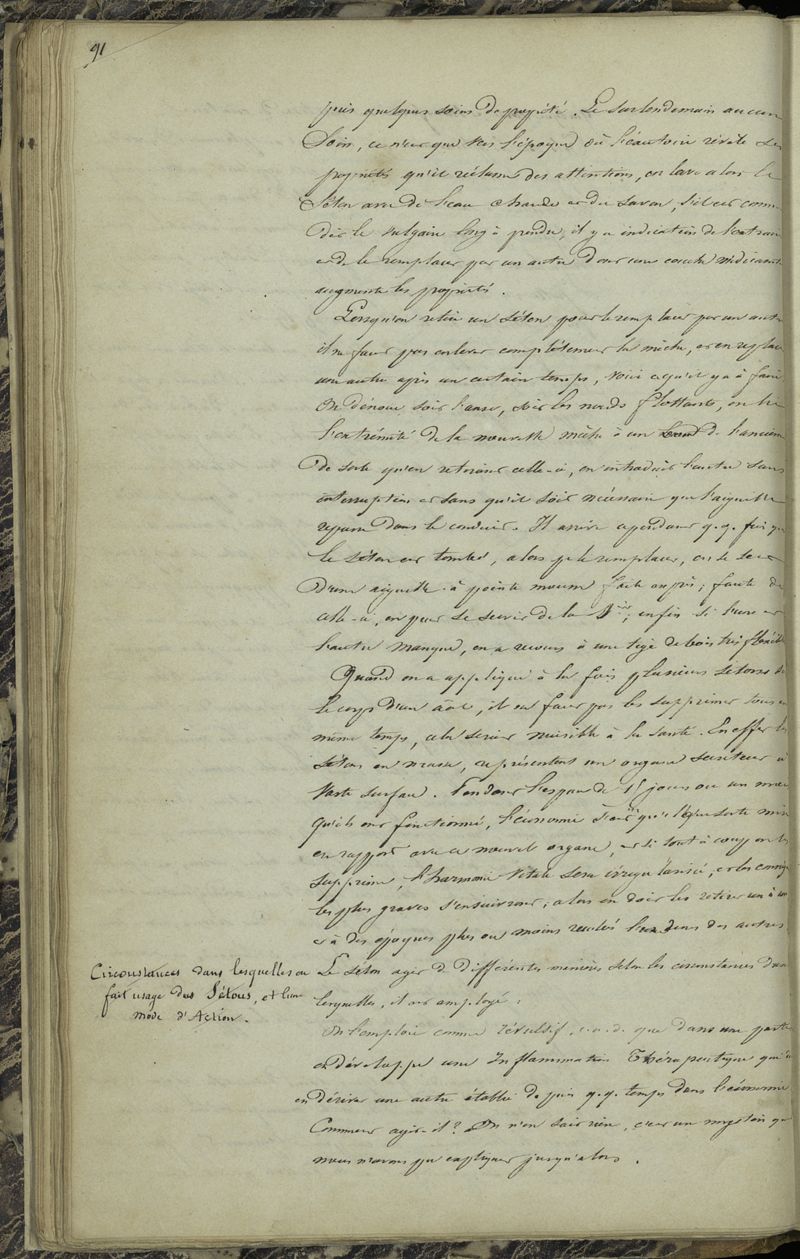 91
puis quelques soins de propreté. Le surlendemain aucun
Soin, ce n'est que vers l'époque où l'exutoire révèle ses
propriétés qu'il réclame des attentions, on lave alors le
Séton avec de l'eau chaude et du savon, s'il est comme
dit le vulgaire long à prendre, il y a indication de l'extraire
et de le remplacer par un autre dont une couche médicamt
augmente les propriétés.
Lorsqu'on retire un séton pour le remplacer par un autre
il ne faut pas enlever complètement la mèche, et en replacer
une autre après un certain temps, voici ce qu'il y a à faire
On dénoue soit l'anse, soit les nœuds flottants, on lie
l'extrémité de la nouvelle mèche à un bout de l'ancienne
de sorte qu'en retirant celle-ci, on introduit l'autre sans
interruption et sans qu'il soit nécessaire que l'aiguille
repasse dans le conduit. Il arrive cependant q.q. fois que
le séton est tombé, alors pr le remplacer, on se sert
d'une aiguille à pointe mousse faite exprès; faute de
celle-ci, on peut se servir de la 1ère; enfin si l'une et
l'autre manque, on a recours à une tige de bois très flexible
Quand on a appliqué à la fois plusieurs sétons sur
le corps d'un aal, il ne faut pas les supprimer tous en
même temps, cela serait nuisible à la santé. En effet les
sétons en masse, représentent un organe sécréteur à
vaste surface. Pendant l'espace de 15 jours ou un mois
qu'ils ont fonctionné, l'économie s'est en quelque sorte mise
en rapport avec ce nouvel organe, et si tout à coup on les
supprime, l'harmonie vitale sera irrégularisée, et les conséq.
les plus graves s'ensuivront; alors on doit les retirer un à un
et à des époques plus ou moins reculées l'une des autres
Circonstances dans lesquelles on
fait usage des Sétons, et leur
mode d'Action.
Le séton agit de différentes manières selon les circonstances dans
lesquelles, il est employé:
On l'emploie comme révulsif, c.a.d. que dans une partie
on développe une Inflammation Thérapeutique qui
en dérive une autre établie depuis q.q. temps dans l'économie
Comment agit-il? On n'en sait rien, c'est un mystère que
nous n'avons pu expliquer jusqu'alors.